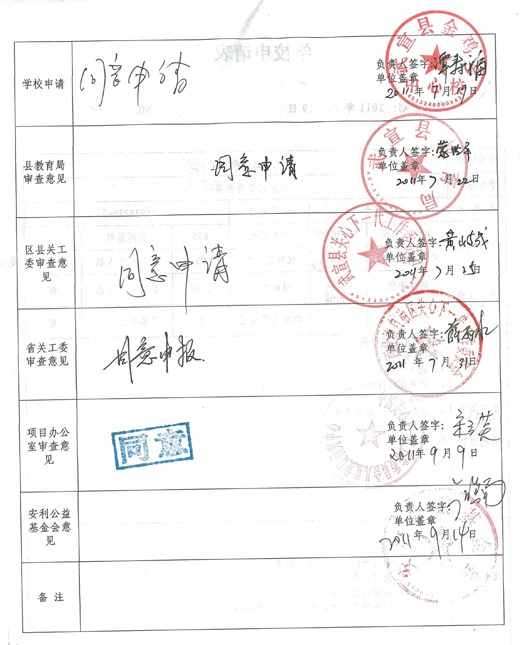 学校申请
同意申请
负责人签字:
单位盖章
2011年7月19日
武宣县金鸡
中心校
县教育局
审查意见
同意申请
负责人签字:
单位盖章
2011年7月22日
武宣县
局
区县关工
委审查意
见
同意申请
负责人签字:
单位盖章
2011年7月25日
武宣县关心下一代工作
省关工委
审查意见
同意申报
负责人签字:
单位盖章
2011年7月31日
区关心下一代
项目办公
室审查意
见
同意
负责人签字:
单位盖章
2011年9月9日
安利公益
基金会意
见
负责人签字:
单位盖章
2011年9月14日
备注